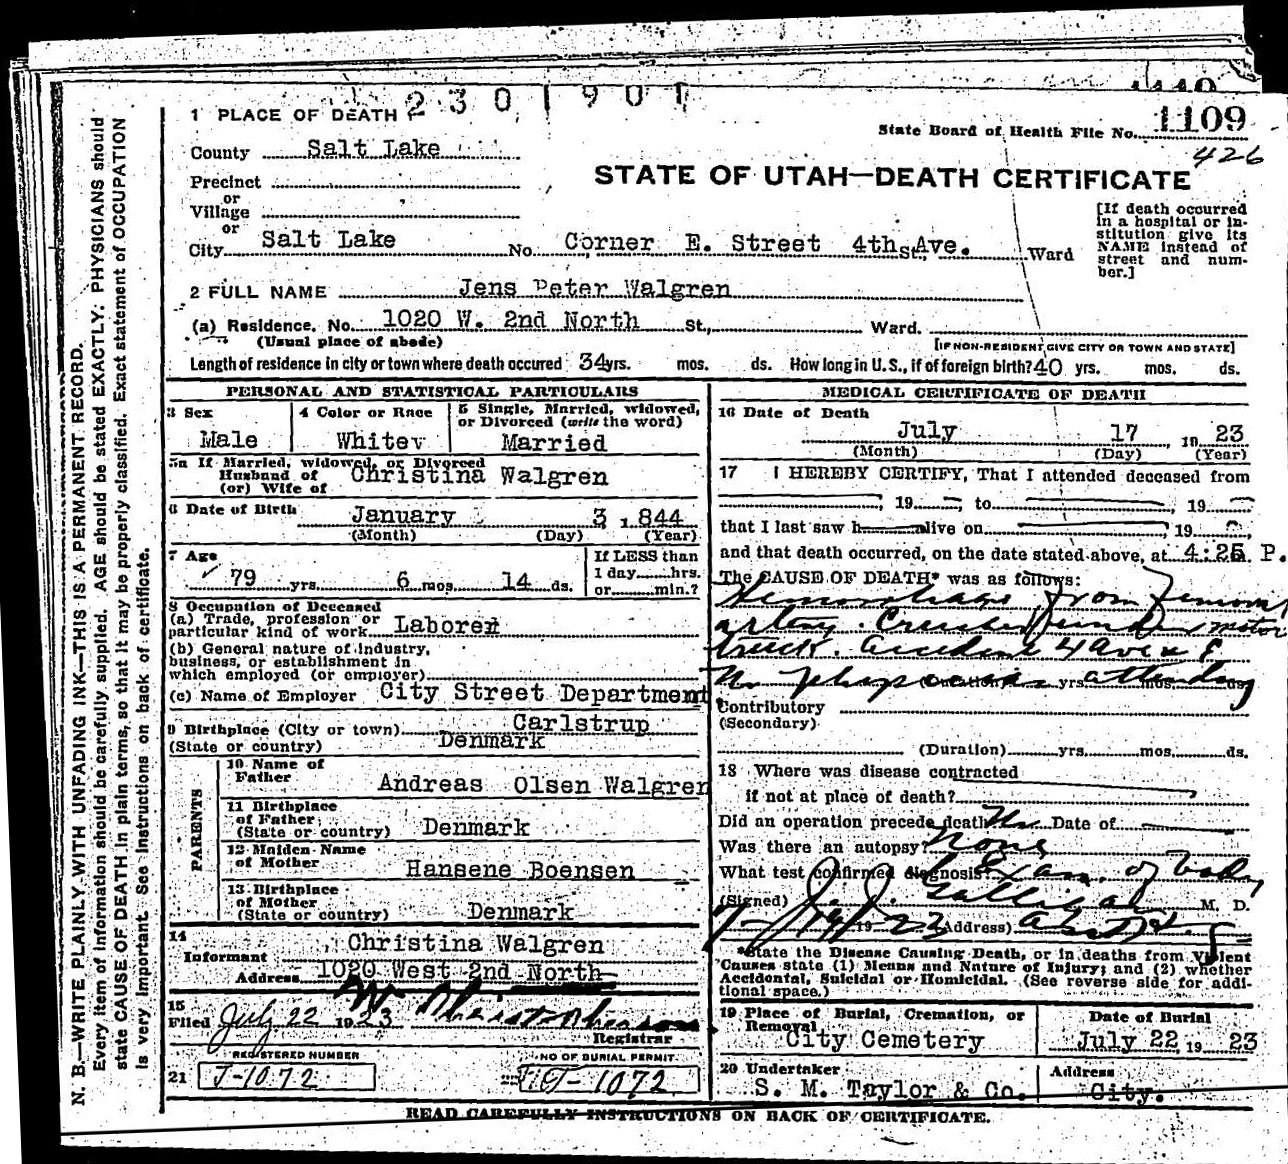 2301901
1110
1 PLACE OF DEATH
State Board of Health File No. 1109
426
County Salt Lake
STATE OF UTAH—DEATH CERTIFICATE
Precinct
or
Village
or
City Salt Lake No. Corner E. Street 4th St., Ave. Ward
[If death occurred in a hospital or in-
stitution give its
NAME instead of
street and num-
ber.]
2 FULL NAME Jens Peter Walgren
(a) Residence. No. 1020 W. 2nd North St., Ward.
(Usual place of abode) [IF NON-RESIDENT GIVE CITY OR TOWN AND STATE]
Length of residence in city or town where death occured 34 yrs. mos. ds. How long in U. S., if of foreign birth? 40 yrs. mos. ds.
PERSONAL AND STATISTICAL PARTICULARS
3 Sex
Male
4 Color or Race
Whitev
5 Single, Married, widowed,
or Divorced (write the word)
Married
5a If Married, widowed, or Divorced
Husband of
(or) Wife of
Christina Walgren
6 Date of Birth January 3 1,844
(Month) (Day) (Year)
7 Age
79 yrs. 6 mos. 14 ds.
If LESS than
1 day......hrs.
or......min.?
8 Occupation of Deceased
(a) Trade, profession or
particular kind of work Laborer
(b) General nature of industry,
business, or establishment in
which employed (or employer)
(c) Name of Employer City Street Department
9 Birthplace (City or town) Carlstrup
(State or country) Denmark
PARENTS
10 Name of
Father Andreas Olsen Walgren
11 Birthplace
of Father
(State or country) Denmark
12 Maiden Name
of Mother Hansene Boensen
13 Birthplace
of Mother
(State or country) Denmark
14
Informant Christina Walgren
Address 1020 West 2nd North
15
Filed July 22 1923
Registrar
REGISTERED NUMBER
21 J-1072
NO OF BURIAL PERMIT
22 1072
MEDICAL CERTIFICATE OF DEATH
16 Date of Death
July 17, 19 23
(Month) (Day) (Year)
17 I HEREBY CERTIFY, That I attended deceased from
, 19 to , 19
that I last saw h alive on , 19
and that death occurred, on the date stated above, at 4:25 P.
The CAUSE OF DEATH* was as follows:
Hemorrhage from femoral
artery. Crushed under motor
truck. Accident 4 Ave & E
No physician attending
(Duration) yrs. mos. ds.
Contributory
(Secondary)
(Duration) yrs. mos. ds.
18 Where was disease contracted
if not at place of death?
Did an operation precede death? No Date of
Was there an autopsy? None
What test confirmed diagnosis? Exam. of body
(Signed) M. D.
19 23 (Address)
*State the Disease Causing Death, or in deaths from Violent
Causes state (1) Means and Nature of Injury; and (2) whether
Accidental, Suicidal or Homicidal. (See reverse side for addi-
tional space.)
19 Place of Burial, Cremation, or
Removal
City Cemetery
Date of Burial
July 22 19 23
20 Undertaker
S. M. Taylor & Co.
Address
City.
READ CAREFULLY INSTRUCTIONS ON BACK OF CERTIFICATE.
N. B.—WRITE PLAINLY WITH UNFADING INK—THIS IS A PERMANENT RECORD.
Every item of information should be carefully supplied. AGE should be stated EXACTLY: PHYSICIANS should
state CAUSE OF DEATH in plain terms, so that it may be properly classified. Exact statement of OCCUPATION
is very important. See instructions on back of certificate.